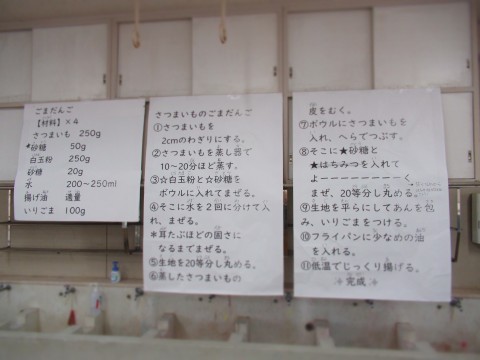 ごまだんご
【材料】×4
さつまいも 250g
★砂糖 50g
白玉粉 250g
砂糖 20g
水 200~250ml
揚げ油 適量
いりごま 100g
さつまいものごまだんご
①さつまいもを
2cmのわぎりにする。
②さつまいもを蒸し器で
10~20分ほど蒸す。
③☆白玉粉と☆砂糖を
ボウルに入れてまぜる。
④そこに水を2回に分けて入
れ、まぜる。
*耳たぶほどの固さに
なるまでまぜる。
⑤生地を20等分し丸める。
⑥蒸したさつまいもの
皮をむく。
⑦ボウルにさつまいもを
入れ、へらでつぶす。
⑧そこに★砂糖と
★はちみつを入れて
よーーーーーーーーく
まぜ、20等分し丸める。
⑨生地を平らにしてあんを包
み、いりごまをつける。
⑩フライパンに少なめの油
を入れる。
⑪低温でじっくり揚げる。
完成